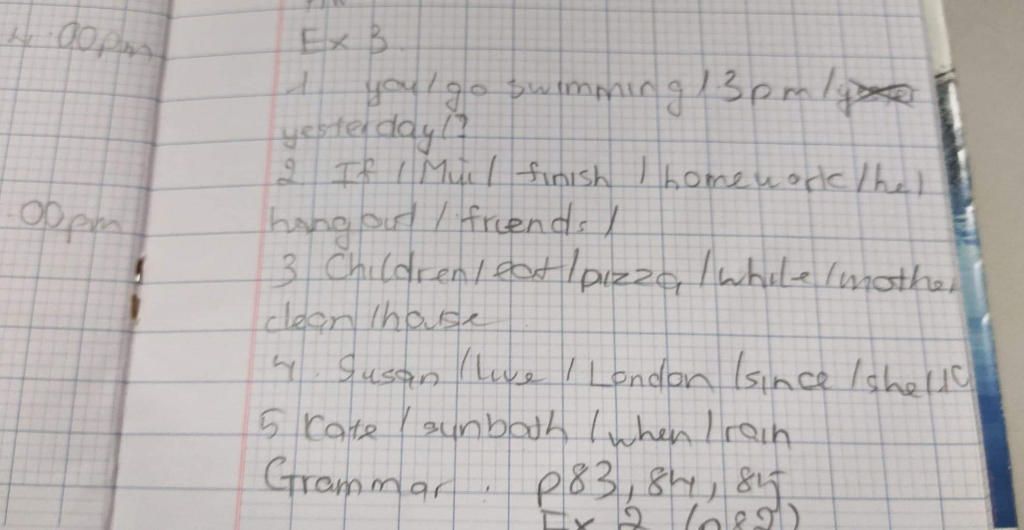 4.00pm
Ex 3.
1 you / go swimming / 3pm /
yesterday /?
2 If / / finish / homework / he /
00pm
hang out / friends /
3 Children / eat / pizza / while / mother
clean / house
4. Susan / live / London / since / she /
5 Kate / sunbath / when / rain
Grammar. p83, 84, 85
Ex 2 (p82)